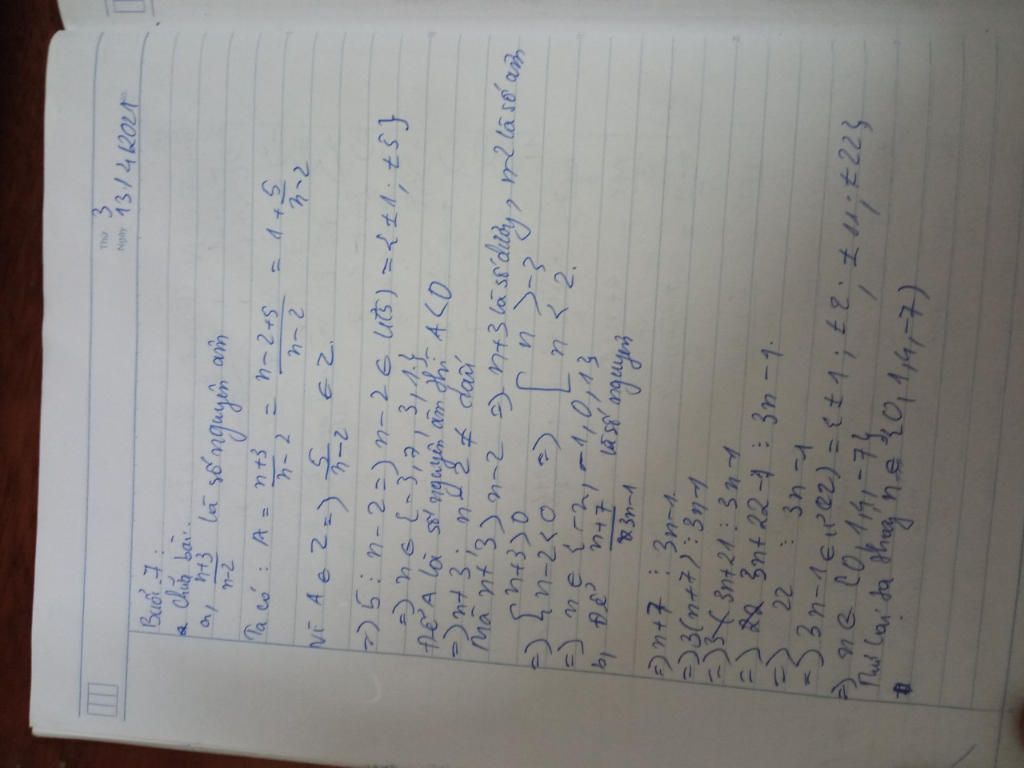 Thứ 3
Ngày 13/4/2021
Buổi 7:
Chữa bài.
a, n+3/n-2 là số nguyên âm
Ta có: A = n+3/n-2 = n-2+5/n-2 = 1 + 5/n-2
Vì A ∈ Z => 5/n-2 ∈ Z.
=> 5 ⋮ n-2 => n-2 ∈ Ư(5) = {±1; ±5}
=> n ∈ {-3, 7, 3, 1.}
Để A là số nguyên âm thì A<0
=> n+3; n-2 ≠ dấu
Mà n+3 > n-2 => n+3 là số dương, n-2 là số âm
=> { n+3>0 => [ n > -3
n-2<0 n < 2.
=> n ∈ {-2, -1, 0, 1}
b, Để n+7/3n-1 là số nguyên
=> n+7 ⋮ 3n-1.
=> 3(n+7) ⋮ 3n-1
=> 3n+21 ⋮ 3n-1
=> 3n+22-1 ⋮ 3n-1.
=> 22 ⋮ 3n-1
=> 3n-1 ∈ Ư(22) = {±1; ±2; ±11; ±22}
=> n ∈ {0, 1, 4, -7}
lại ta thấy n = 0, 1, 4, -7)